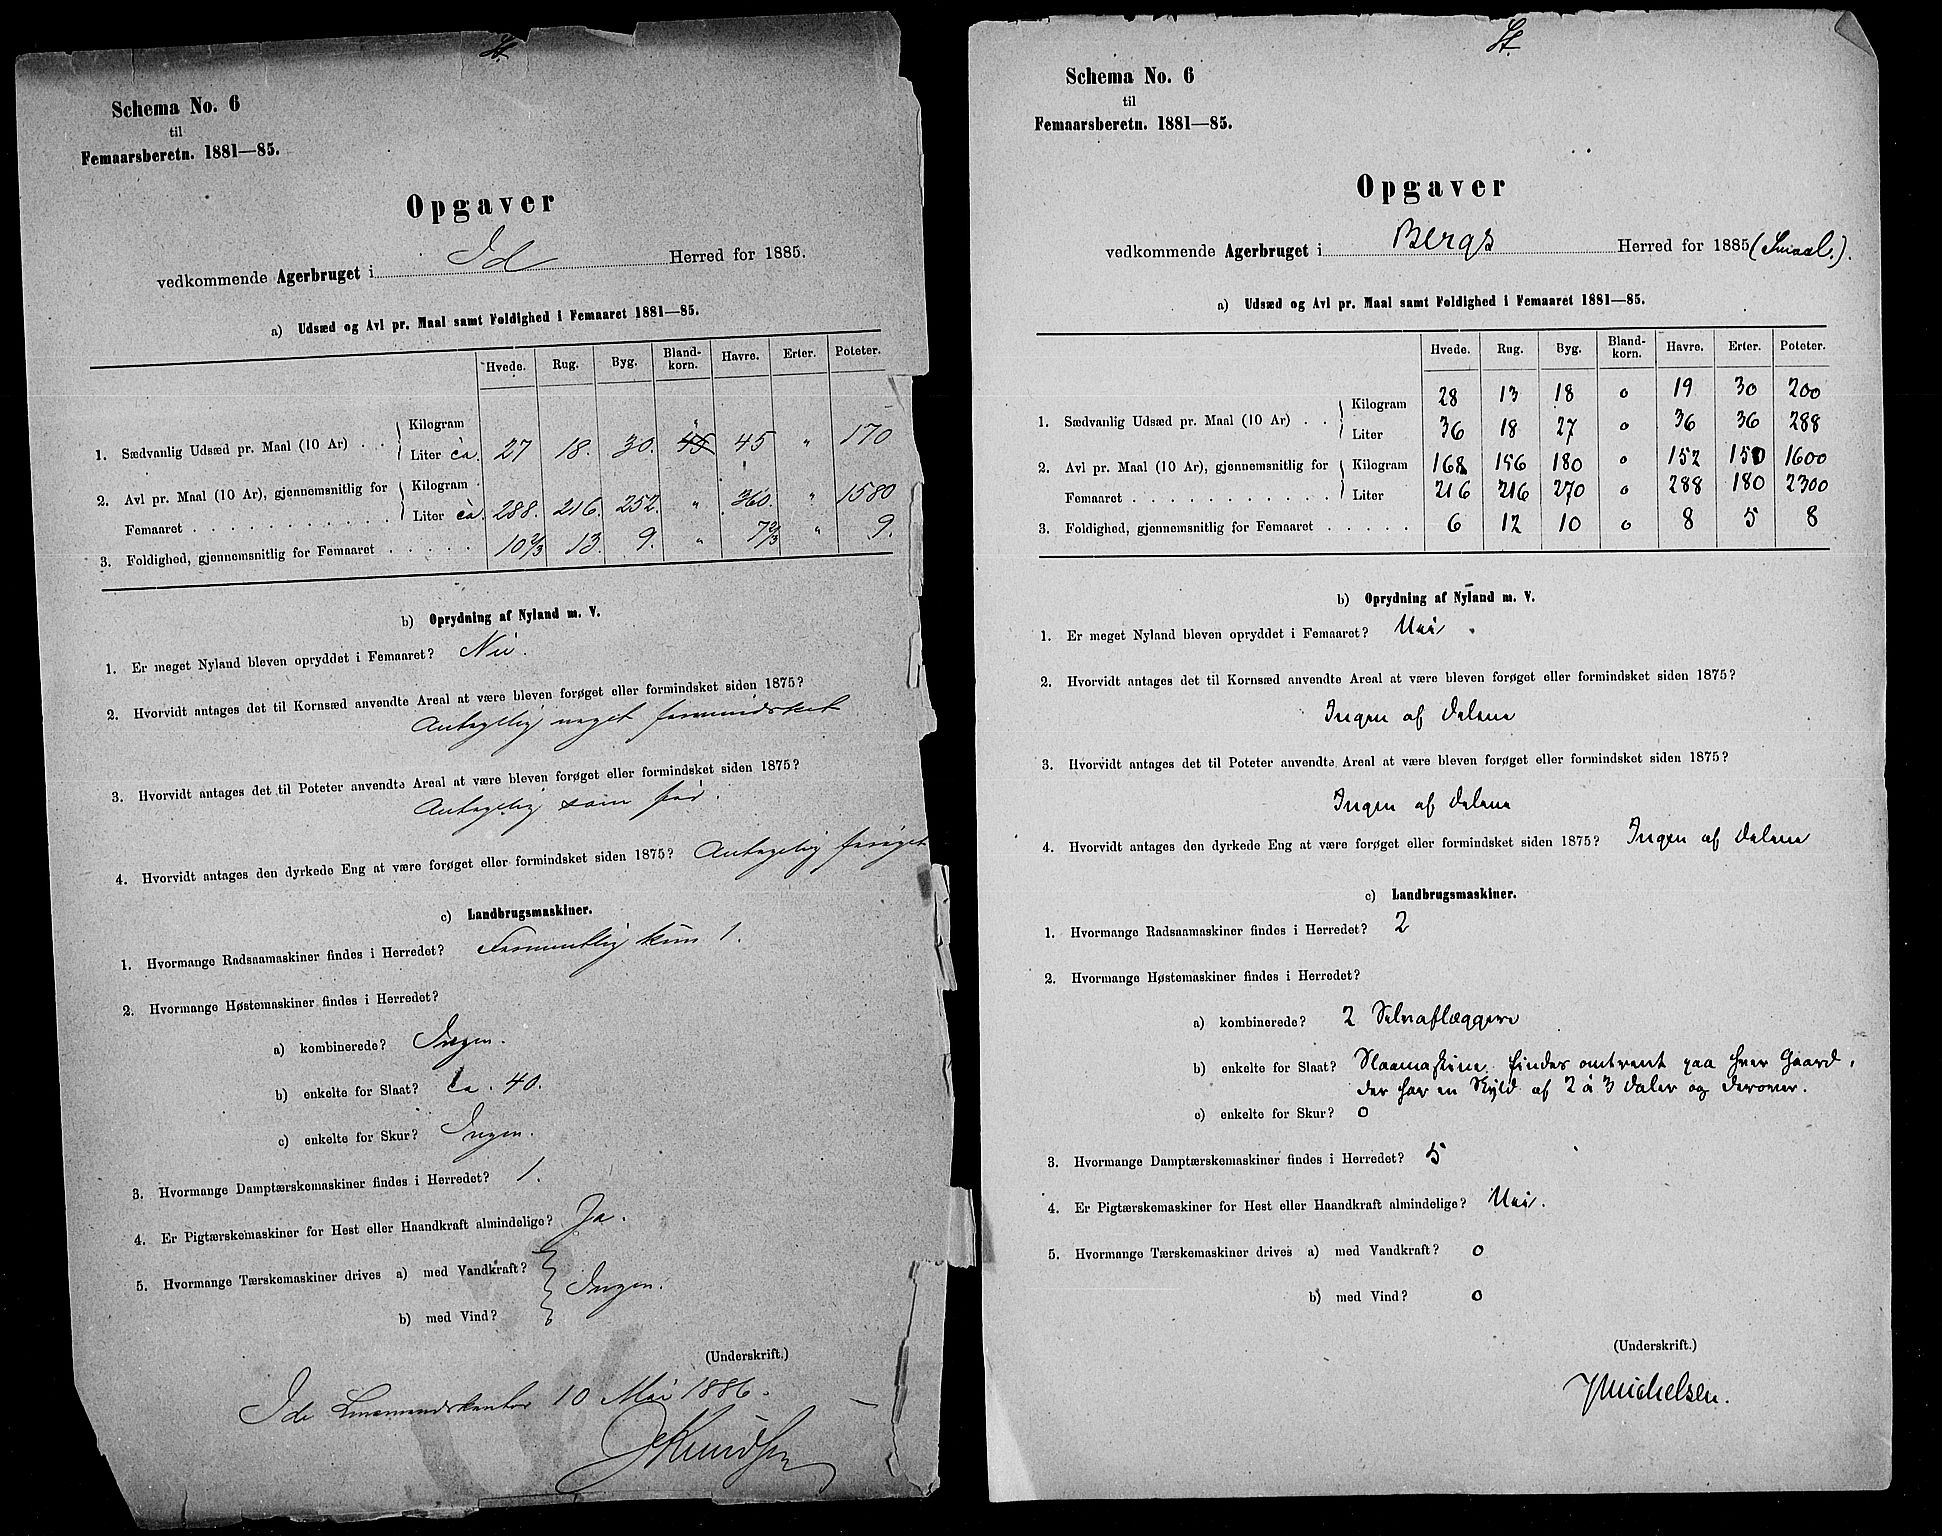 St.
Schema No. 6
til
Femaarsberetn. 1881—85.
Opgaver
vedkommende Agerbruget i Id Herred for 1885.
a) Udsæd og Avl pr. Maal samt Foldighed i Femaaret 1881—85.
Hvede. Rug. Byg. Bland-korn. Havre. Erter. Poteter.
1. Sædvanlig Udsæd pr. Maal (10 Ar) . . Kilogram "
Liter ca. 27 18. 30. 45 45 " 170
2. Avl pr. Maal (10 Ar), gjennemsnitlig for Kilogram
Femaaret . . . . . . . . . . . Liter ca. 288. 216. 252. " 360. " 1580
3. Foldighed, gjennemsnitlig for Femaaret . . . . . 10 2/3 13. 9. " 7 2/3 " 9.
b) Oprydning af Nyland m. V.
1. Er meget Nyland bleven opryddet i Femaaret? Nei.
2. Hvorvidt antages det til Kornsæd anvendte Areal at være bleven forøget eller formindsket siden 1875?
Antagelig noget formindsket
3. Hvorvidt antages det til Poteter anvendte Areal at være bleven forøget eller formindsket siden 1875?
Antagelig som før.
4. Hvorvidt antages den dyrkede Eng at være forøget eller formindsket siden 1875? Antagelig forøget
c) Landbrugsmaskiner.
1. Hvormange Radsaamaskiner findes i Herredet? Formentlig kun 1.
2. Hvormange Høstemaskiner findes i Herredet?
a) kombinerede? Ingen.
b) enkelte for Slaat? ca. 40.
c) enkelte for Skur? Ingen.
3. Hvormange Damptærskemaskiner findes i Herredet? 1.
4. Er Pigtærskemaskiner for Hest eller Haandkraft almindelige? Ja.
5. Hvormange Tærskemaskiner drives a) med Vandkraft?
Ingen.
b) med Vind?
(Underskrift.)
Ide Lensmandskontor 10 Mai 1886.
Knudsen
St.
Schema No. 6
til
Femaarsberetn. 1881—85.
Opgaver
vedkommende Agerbruget i Bergs Herred for 1885 (Smaal.).
a) Udsæd og Avl pr. Maal samt Foldighed i Femaaret 1881—85.
Hvede. Rug. Byg. Bland-korn. Havre. Erter. Poteter.
1. Sædvanlig Udsæd pr. Maal (10 Ar) . . Kilogram 28 13 18 0 19 30 200
Liter 36 18 27 0 36 36 288
2. Avl pr. Maal (10 Ar), gjennemsnitlig for Kilogram 168 156 180 0 152 150 1600
Femaaret . . . . . . . . . . . Liter 216 216 270 0 288 180 2300
3. Foldighed, gjennemsnitlig for Femaaret . . . . . 6 12 10 0 8 5 8
b) Oprydning af Nyland m. V.
1. Er meget Nyland bleven opryddet i Femaaret? Nei.
2. Hvorvidt antages det til Kornsæd anvendte Areal at være bleven forøget eller formindsket siden 1875?
Ingen af Delene
3. Hvorvidt antages det til Poteter anvendte Areal at være bleven forøget eller formindsket siden 1875?
Ingen af Delene
4. Hvorvidt antages den dyrkede Eng at være forøget eller formindsket siden 1875? Ingen af Delene
c) Landbrugsmaskiner.
1. Hvormange Radsaamaskiner findes i Herredet? 2
2. Hvormange Høstemaskiner findes i Herredet?
a) kombinerede? 2 Selvaflæggere
b) enkelte for Slaat? Slaamaskine findes omtrent paa hver Gaard,
der har en Skyld af 2 à 3 Daler og derover.
c) enkelte for Skur? 0
3. Hvormange Damptærskemaskiner findes i Herredet? 5
4. Er Pigtærskemaskiner for Hest eller Haandkraft almindelige? Nei.
5. Hvormange Tærskemaskiner drives a) med Vandkraft? 0
b) med Vind? 0
(Underskrift.)
J Michelsen.